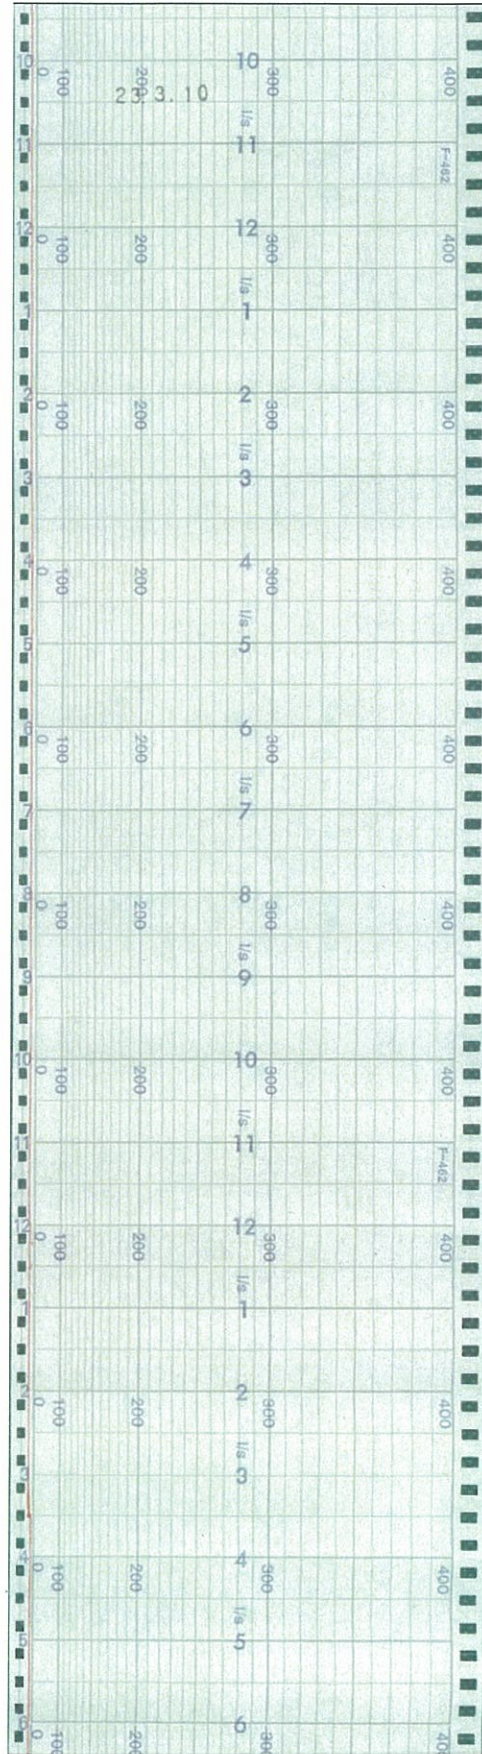 10 10
0 100 200 300 400
23. 3. 10
l/s
11 11 F-462
12 12
0 100 200 300 400
l/s
1 1
2 2
0 100 200 300 400
l/s
3 3
4 4
0 100 200 300 400
l/s
5 5
6 6
0 100 200 300 400
l/s
7 7
8 8
0 100 200 300 400
l/s
9 9
10 10
0 100 200 300 400
l/s
11 11 F-462
12 12
0 100 200 300 400
l/s
1 1
2 2
0 100 200 300 400
l/s
3 3
4 4
0 100 200 300 400
l/s
5 5
6 6
0 300